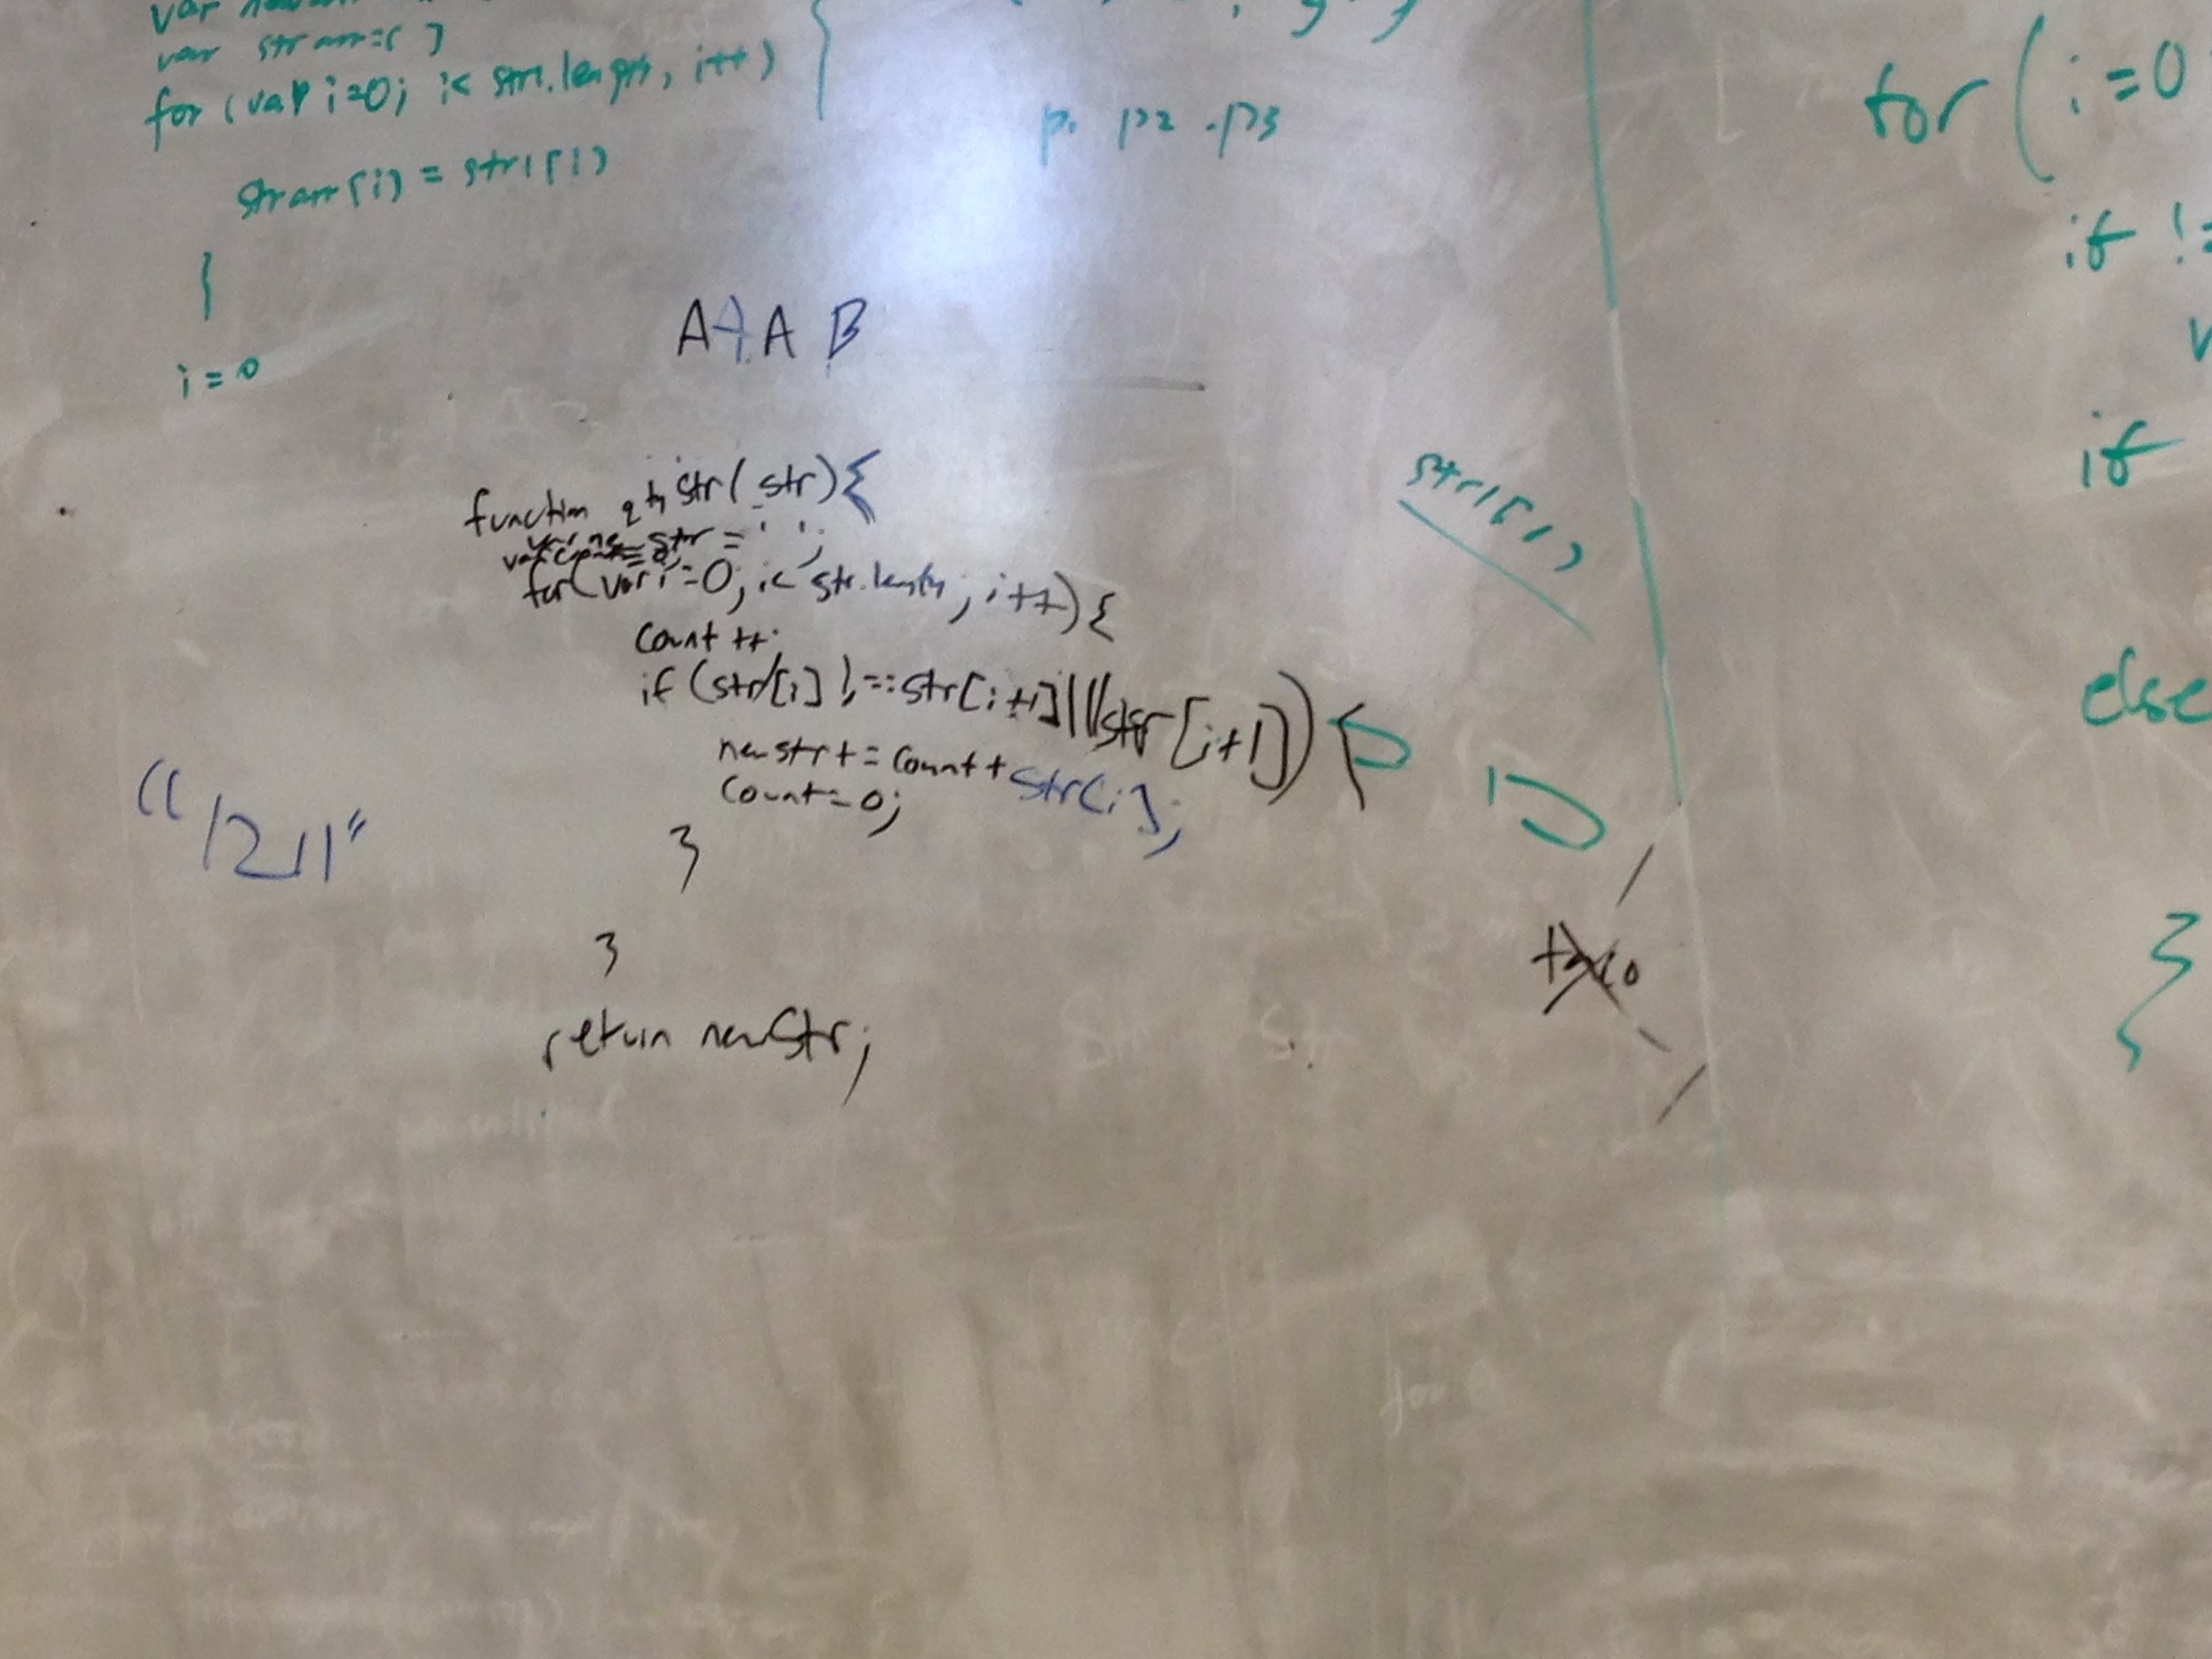 var
var strarr=[ ]
for (var i=0; i< str1.length, i++) {
strarr[i] = str1[i]
}
i=0
p. p2 .p3
AAAB
function qtyStr(str){
var newstr = ' ';
var count=0;
for(var i=0; i< str.length; i++){
count ++;
if (str[i] !== str[i+1] || !str[i+1]) {
newstr += count + str[i];
count=0;
}
}
return newStr;
"1211"
str1[i]
for (i=0
if !=
if
else
}